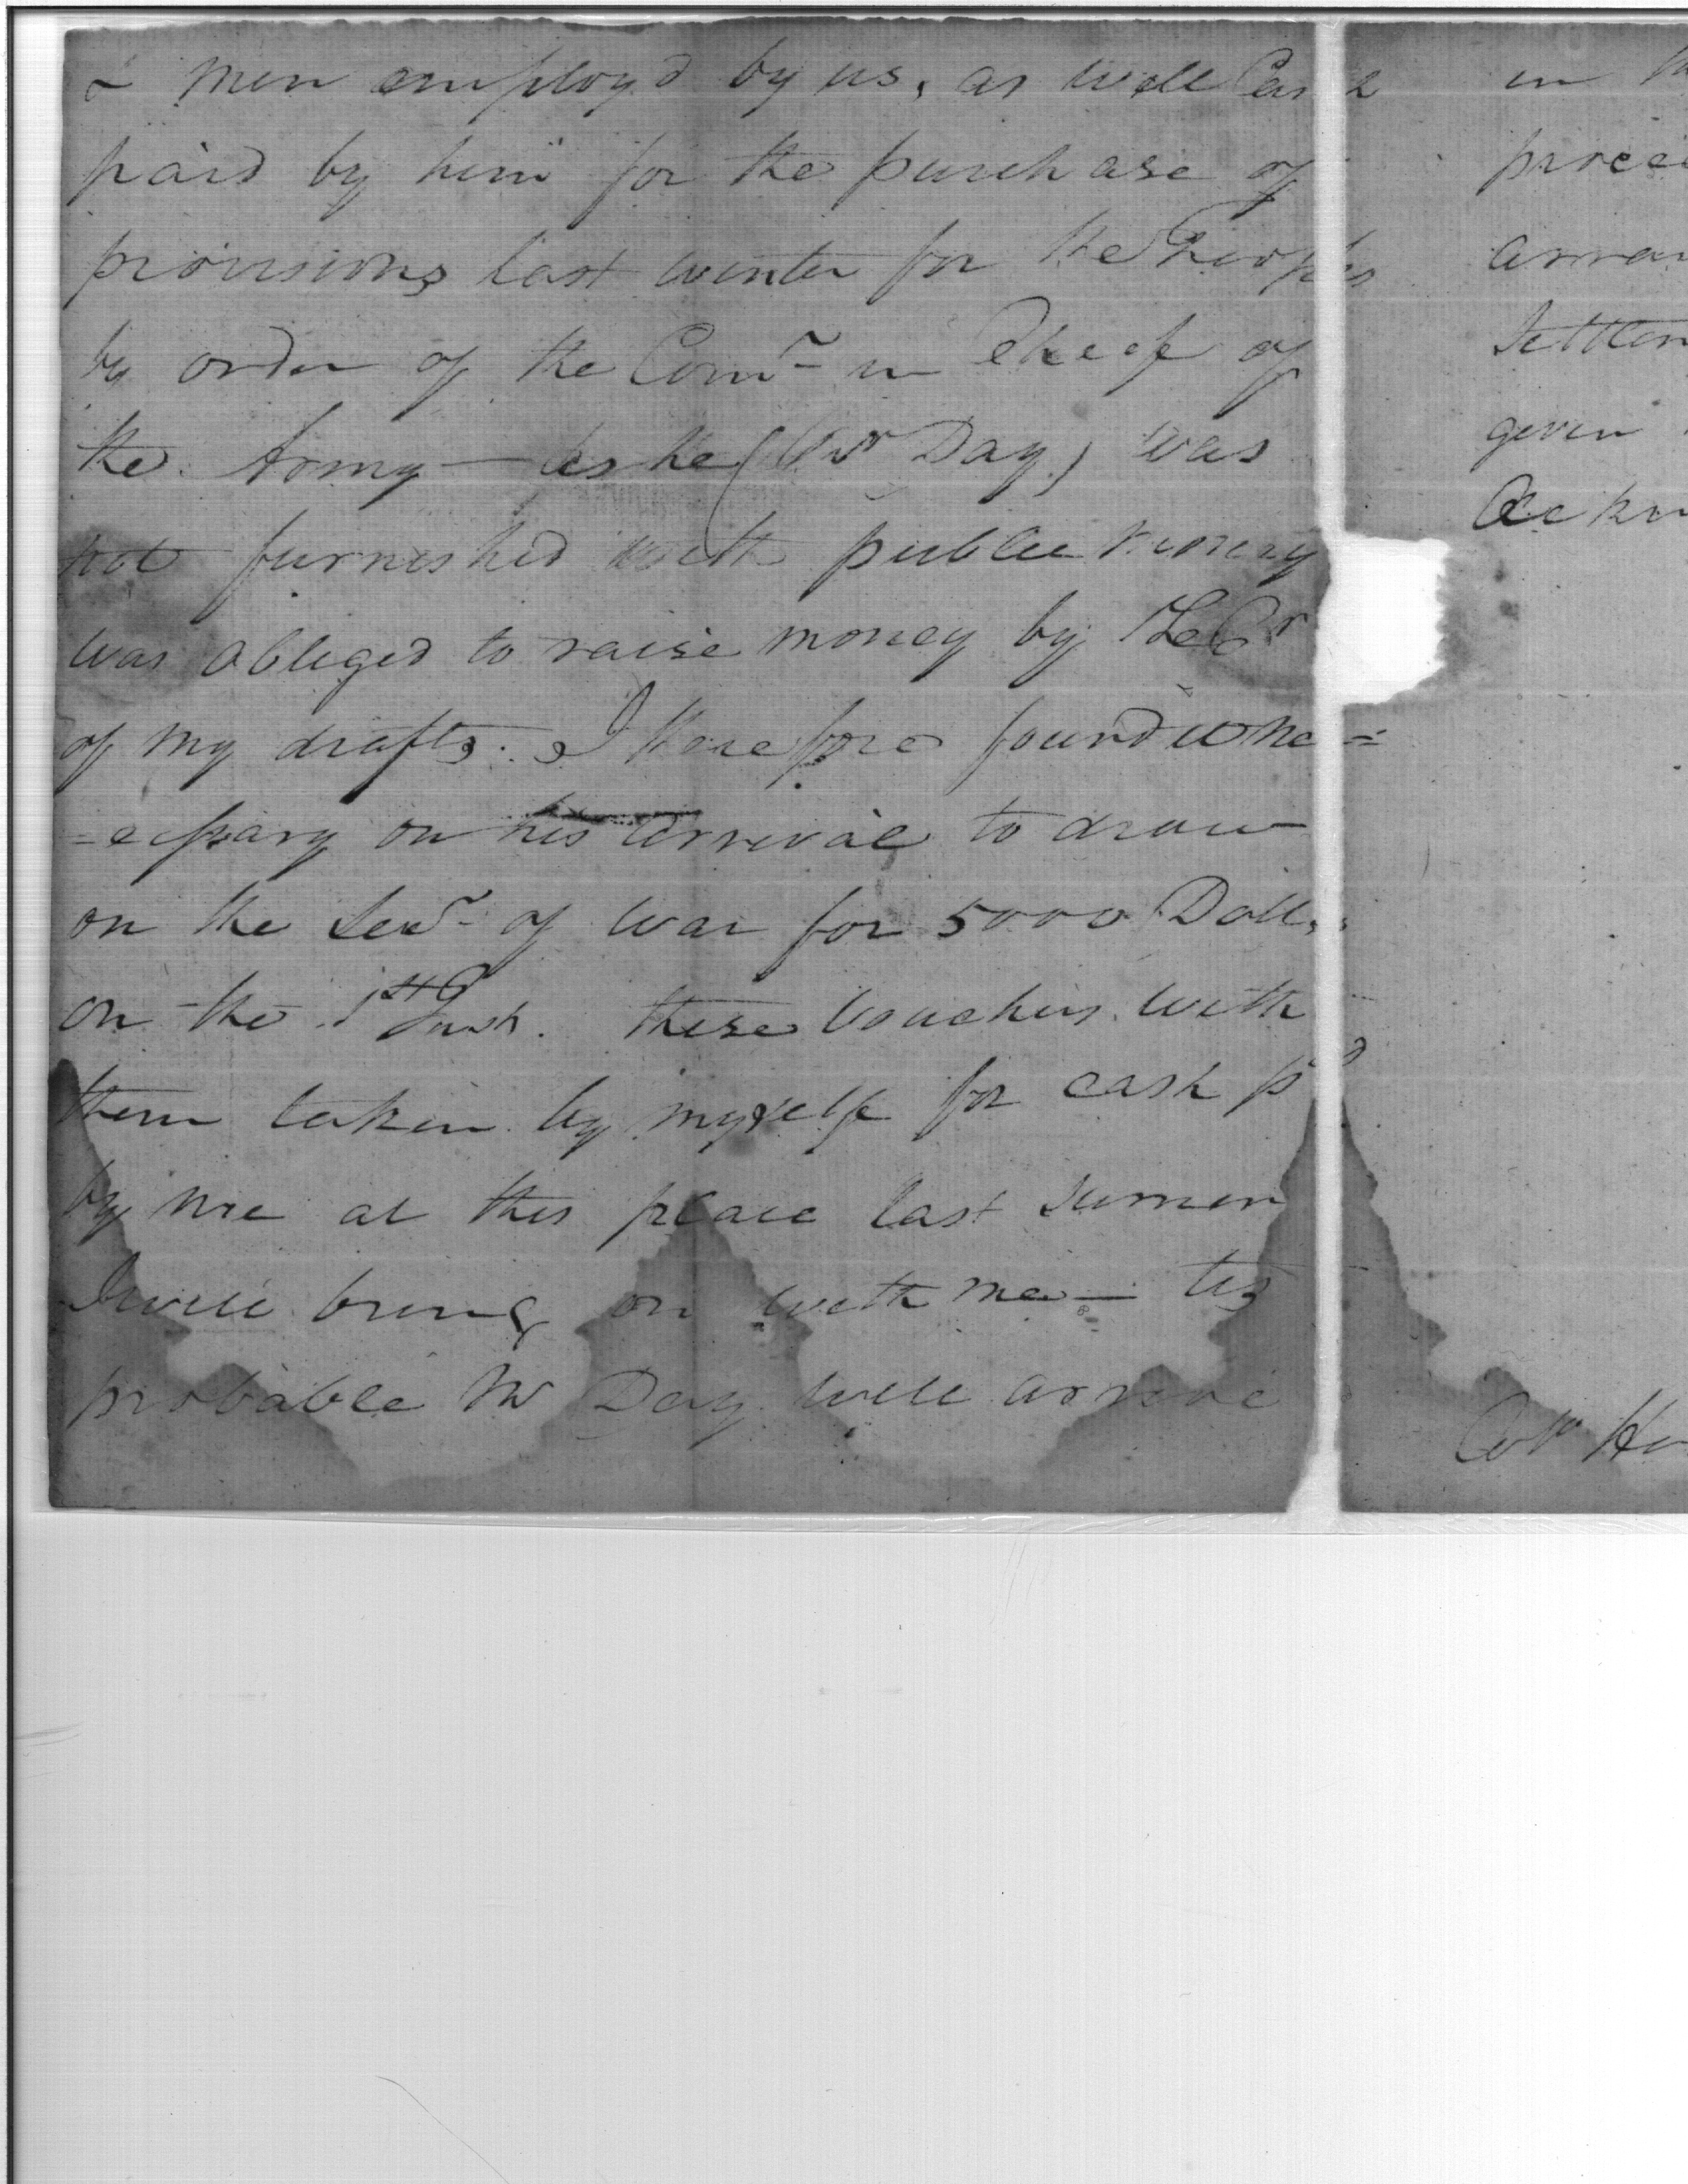 & men employ'd by us, as well Cash
paid by him for the purchase of
provisions last winter for the Troops
by order of the Comr in Cheif of
the Army — as he (Mr Day) was
not furnished with public money
was obliged to raise money by
of my drafts. I therefore found it ne=
=cessary on his arrival to draw
on the Secy of War for 5000 Dolls
on the 1st Inst. these Vouchers with
them taken by myself for cash pd
by me at this place last summer
I will bring on with me — tis
probable Mr Day will arrive
in
given
Colo